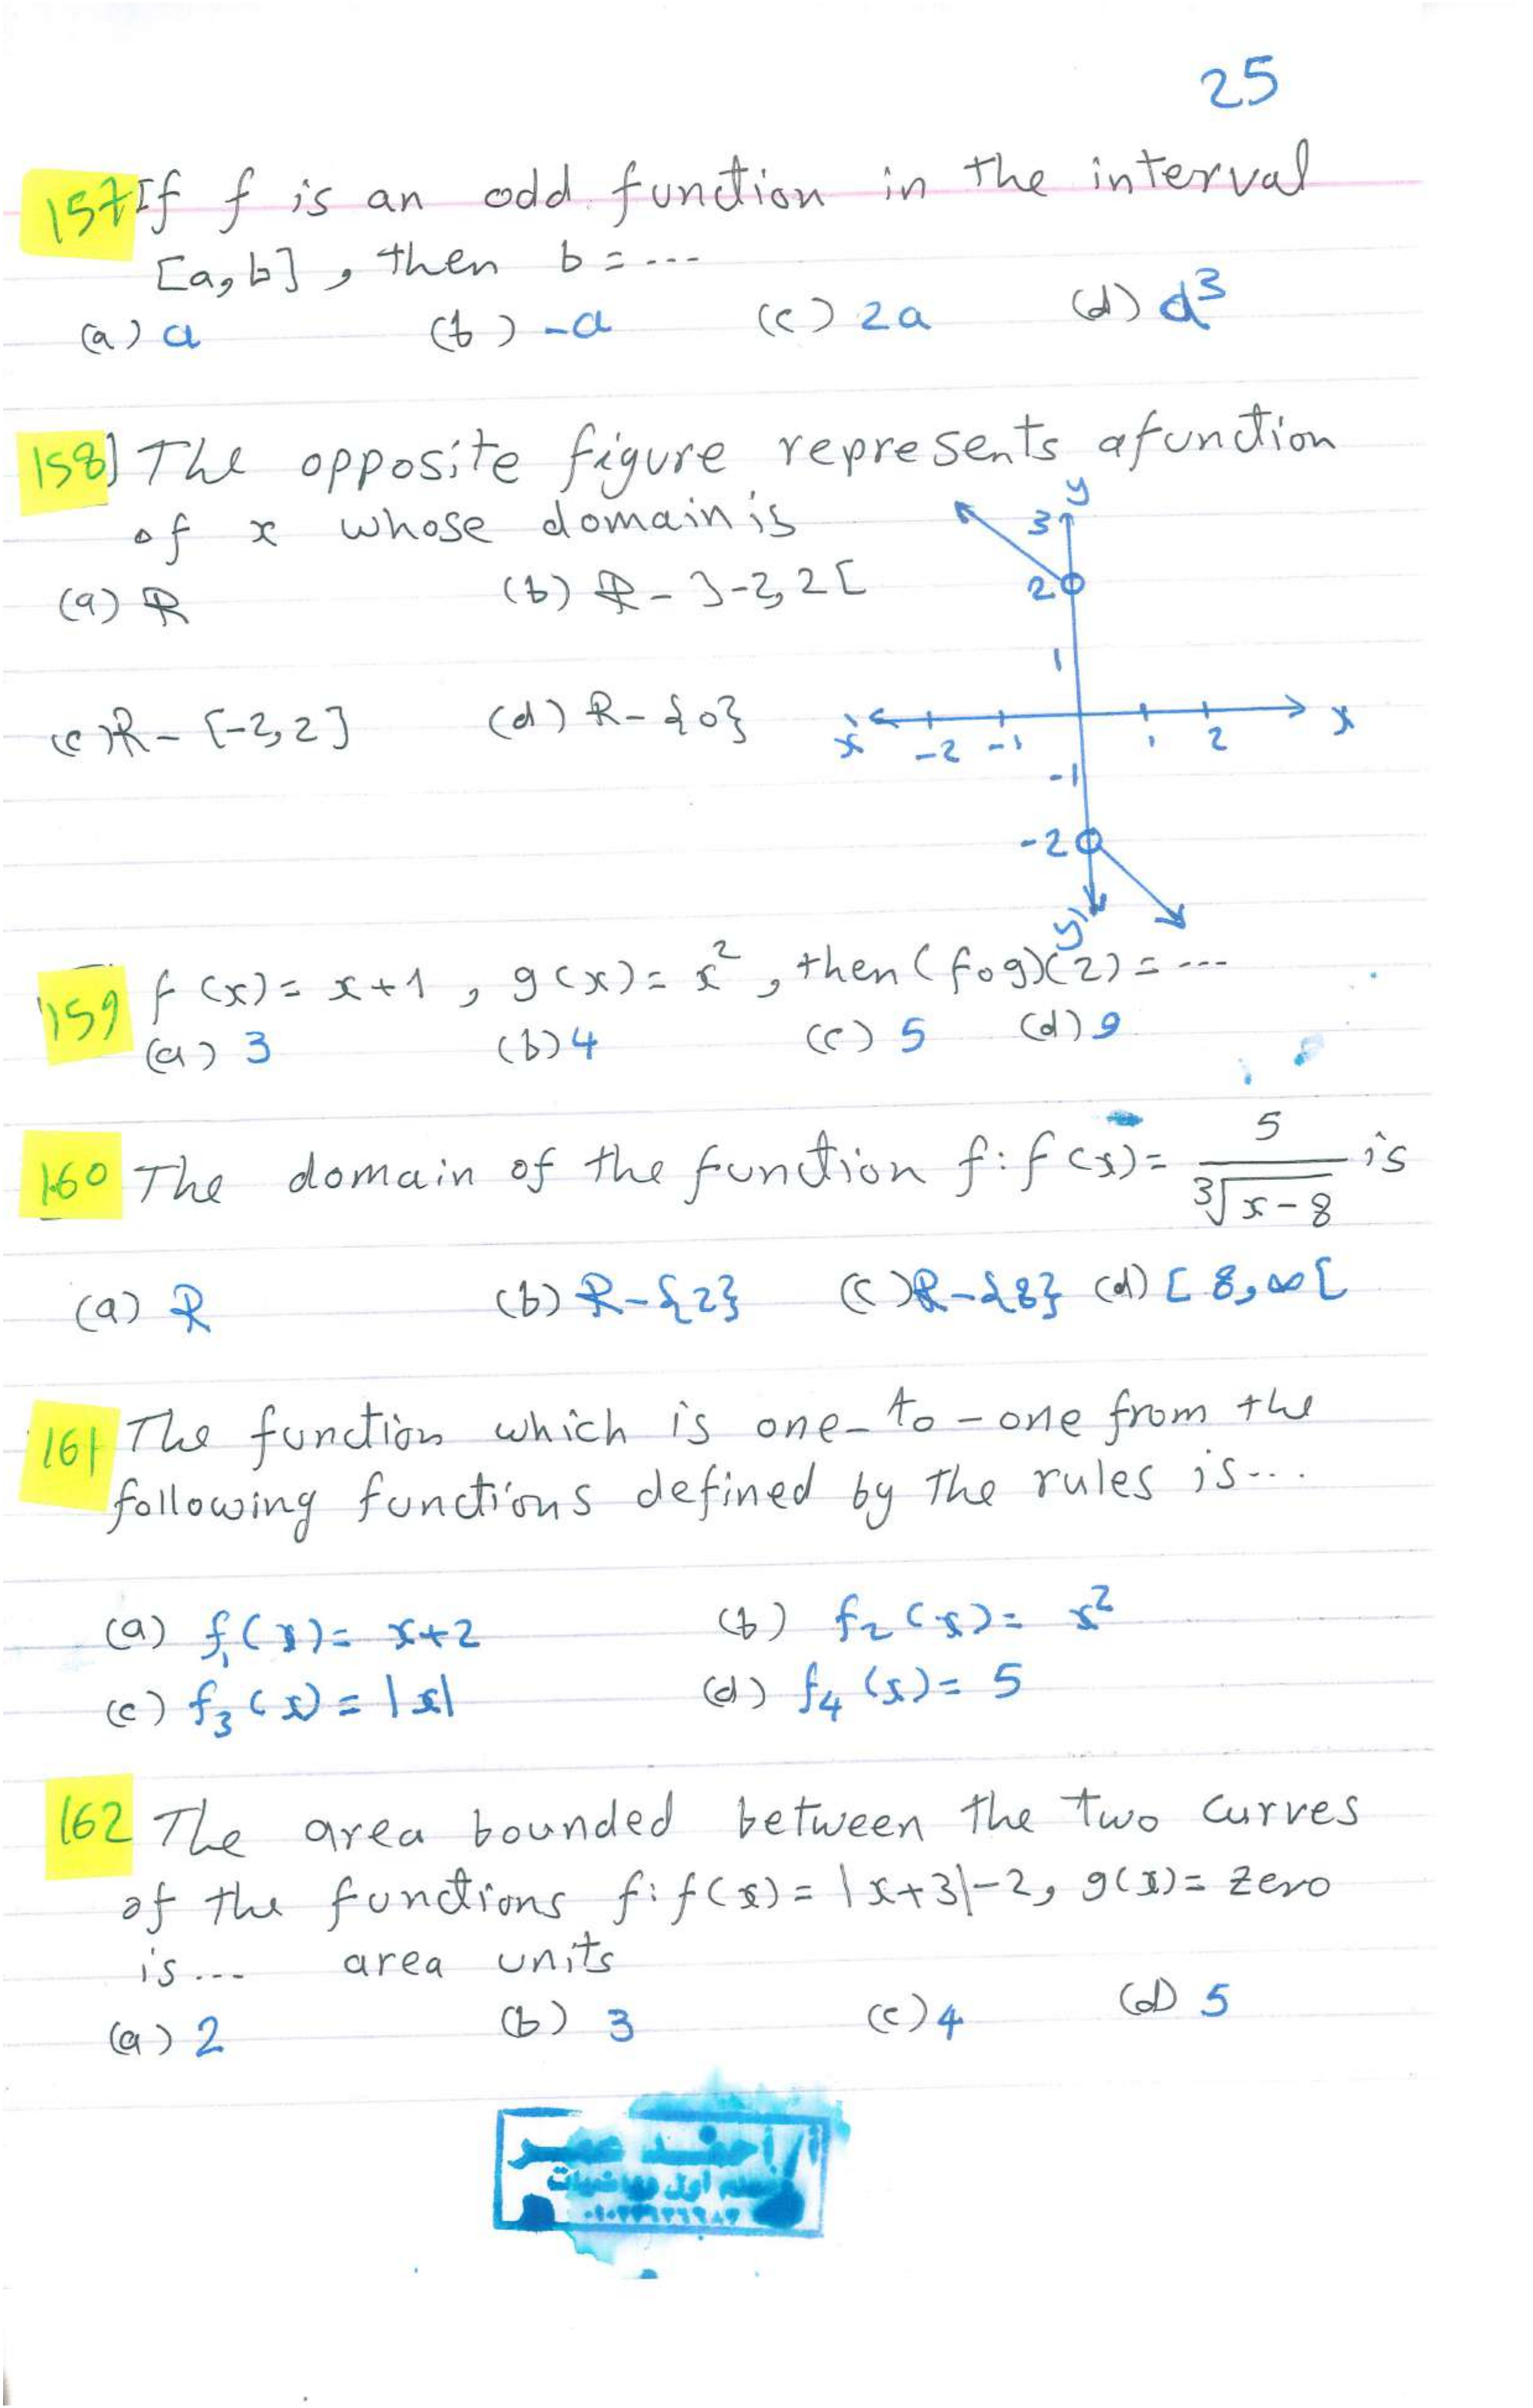 25
157 If f is an odd function in the interval
[a,b], then b = ---
(a) a (b) -a (c) 2a (d) a³
158] The opposite figure represents afunction
of x whose domain is
(a) R (b) R - ]-2,2[
(c) R - [-2,2] (d) R - {0}
y
3
2
1
x' -2 -1 1 2 x
-1
-2
y'
159 f(x) = x+1, g(x) = x², then (fog)(2) = ---
(a) 3 (b) 4 (c) 5 (d) 9
160 The domain of the function f: f(x) = 5/∛(x-8) is
(a) R (b) R-{2} (c) R-{8} (d) [8,∞[
161 The function which is one-to-one from the
following functions defined by the rules is...
(a) f₁(x) = x+2 (b) f₂(x) = x²
(c) f₃(x) = |x| (d) f₄(x) = 5
162 The area bounded between the two curves
of the functions f: f(x) = |x+3|-2, g(x) = zero
is --- area units
(a) 2 (b) 3 (c) 4 (d) 5
أ/أحمد عمر
معلم أول رياضيات